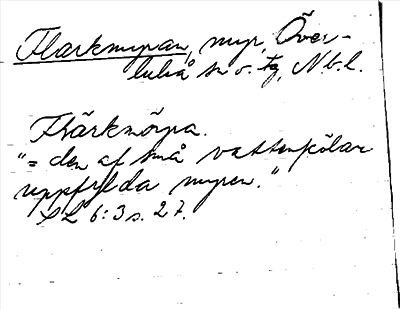 Flarkmyran, myr, Över-
luleå sn o. tg, N.b.l.
Flärkmörpa.
"= den af små vattenpölar
uppfylda myren."
SL 6:3 s. 27.